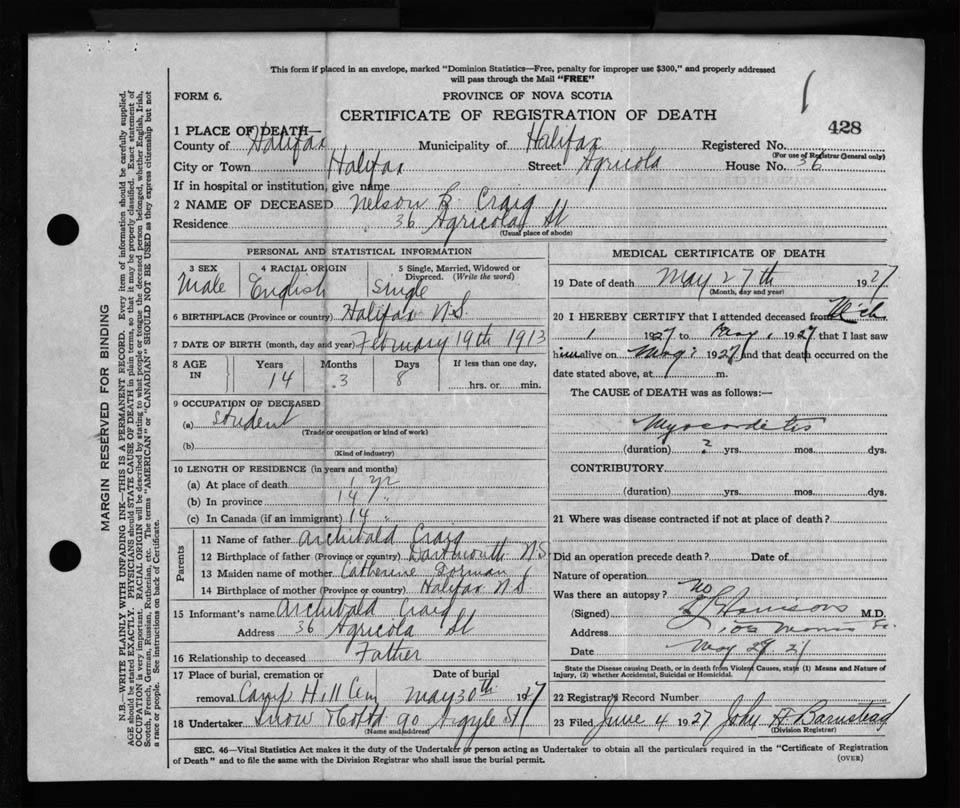 This form if placed in an envelope, marked "Dominion Statistics—Free, penalty for improper use $300," and properly addressed
will pass through the Mail "FREE"
FORM 6.
PROVINCE OF NOVA SCOTIA
CERTIFICATE OF REGISTRATION OF DEATH
428
1 PLACE OF DEATH—
County of Halifax Municipality of Halifax Registered No.
(For use of Registrar General only)
City or Town Halifax Street Agricola House No. 36
If in hospital or institution, give name
2 NAME OF DECEASED Nelson R. Craig
Residence 36 Agricola St
(Usual place of abode)
PERSONAL AND STATISTICAL INFORMATION
3 SEX 4 RACIAL ORIGIN 5 Single, Married, Widowed or
Divorced. (Write the word)
Male English Single
6 BIRTHPLACE (Province or country) Halifax N.S.
7 DATE OF BIRTH (month, day and year) February 19th 1913
8 AGE IN Years Months Days If less than one day,
14 3 8 hrs. or min.
9 OCCUPATION OF DECEASED
(a) Student
(Trade or occupation or kind of work)
(b)
(Kind of industry)
10 LENGTH OF RESIDENCE (in years and months)
(a) At place of death 1 yr
(b) In province 14 "
(c) In Canada (if an immigrant) 14 "
Parents
11 Name of father Archibald Craig
12 Birthplace of father (Province or country) Dartmouth N.S
13 Maiden name of mother Catherine Dorman
14 Birthplace of mother (Province or country) Halifax N.S
15 Informant's name Archibald Craig
Address 36 Agricola St
16 Relationship to deceased Father
17 Place of burial, cremation or Date of burial
removal Camp Hill Cem May 30th 1927
18 Undertaker Snow & Co Ltd 90 Argyle St
(Name and address)
MEDICAL CERTIFICATE OF DEATH
19 Date of death May 27th 1927
(Month, day and year)
20 I HEREBY CERTIFY that I attended deceased from Mch
1 1927 to May 1927 that I last saw
him alive on May 1927 and that death occurred on the
date stated above, at m.
The CAUSE OF DEATH was as follows:—
Myocarditis
(duration) ? yrs. mos. dys.
CONTRIBUTORY
(duration) yrs. mos. dys.
21 Where was disease contracted if not at place of death?
Did an operation precede death? Date of
Nature of operation
Was there an autopsy? No
(Signed) M.D.
Address Morris St.
Date May
State the Disease causing Death, or in death from Violent Causes, state (1) Means and Nature of
Injury, (2) whether Accidental, Suicidal or Homicidal.
22 Registrar's Record Number
23 Filed June 4 1927 John H Barnstead
(Division Registrar)
SEC. 46—Vital Statistics Act makes it the duty of the Undertaker or person acting as Undertaker to obtain all the particulars required in the "Certificate of Registration
of Death" and to file the same with the Division Registrar who shall issue the burial permit.
(OVER)
MARGIN RESERVED FOR BINDING
N.B.—WRITE PLAINLY WITH UNFADING INK—THIS IS A PERMANENT RECORD. Every item of information should be carefully supplied.
AGE should be stated EXACTLY. PHYSICIANS should STATE CAUSE OF DEATH in plain terms, so that it may be properly classified. Exact statement of
OCCUPATION is very important. RACIAL ORIGIN will be described by stating to what people or tongue the deceased person belonged, whether English, Irish,
Scotch, French, German, Russian, Ruthenian, etc. The terms "AMERICAN" or "CANADIAN" SHOULD NOT BE USED as they express citizenship but not
a race or people. See instructions on back of Certificate.